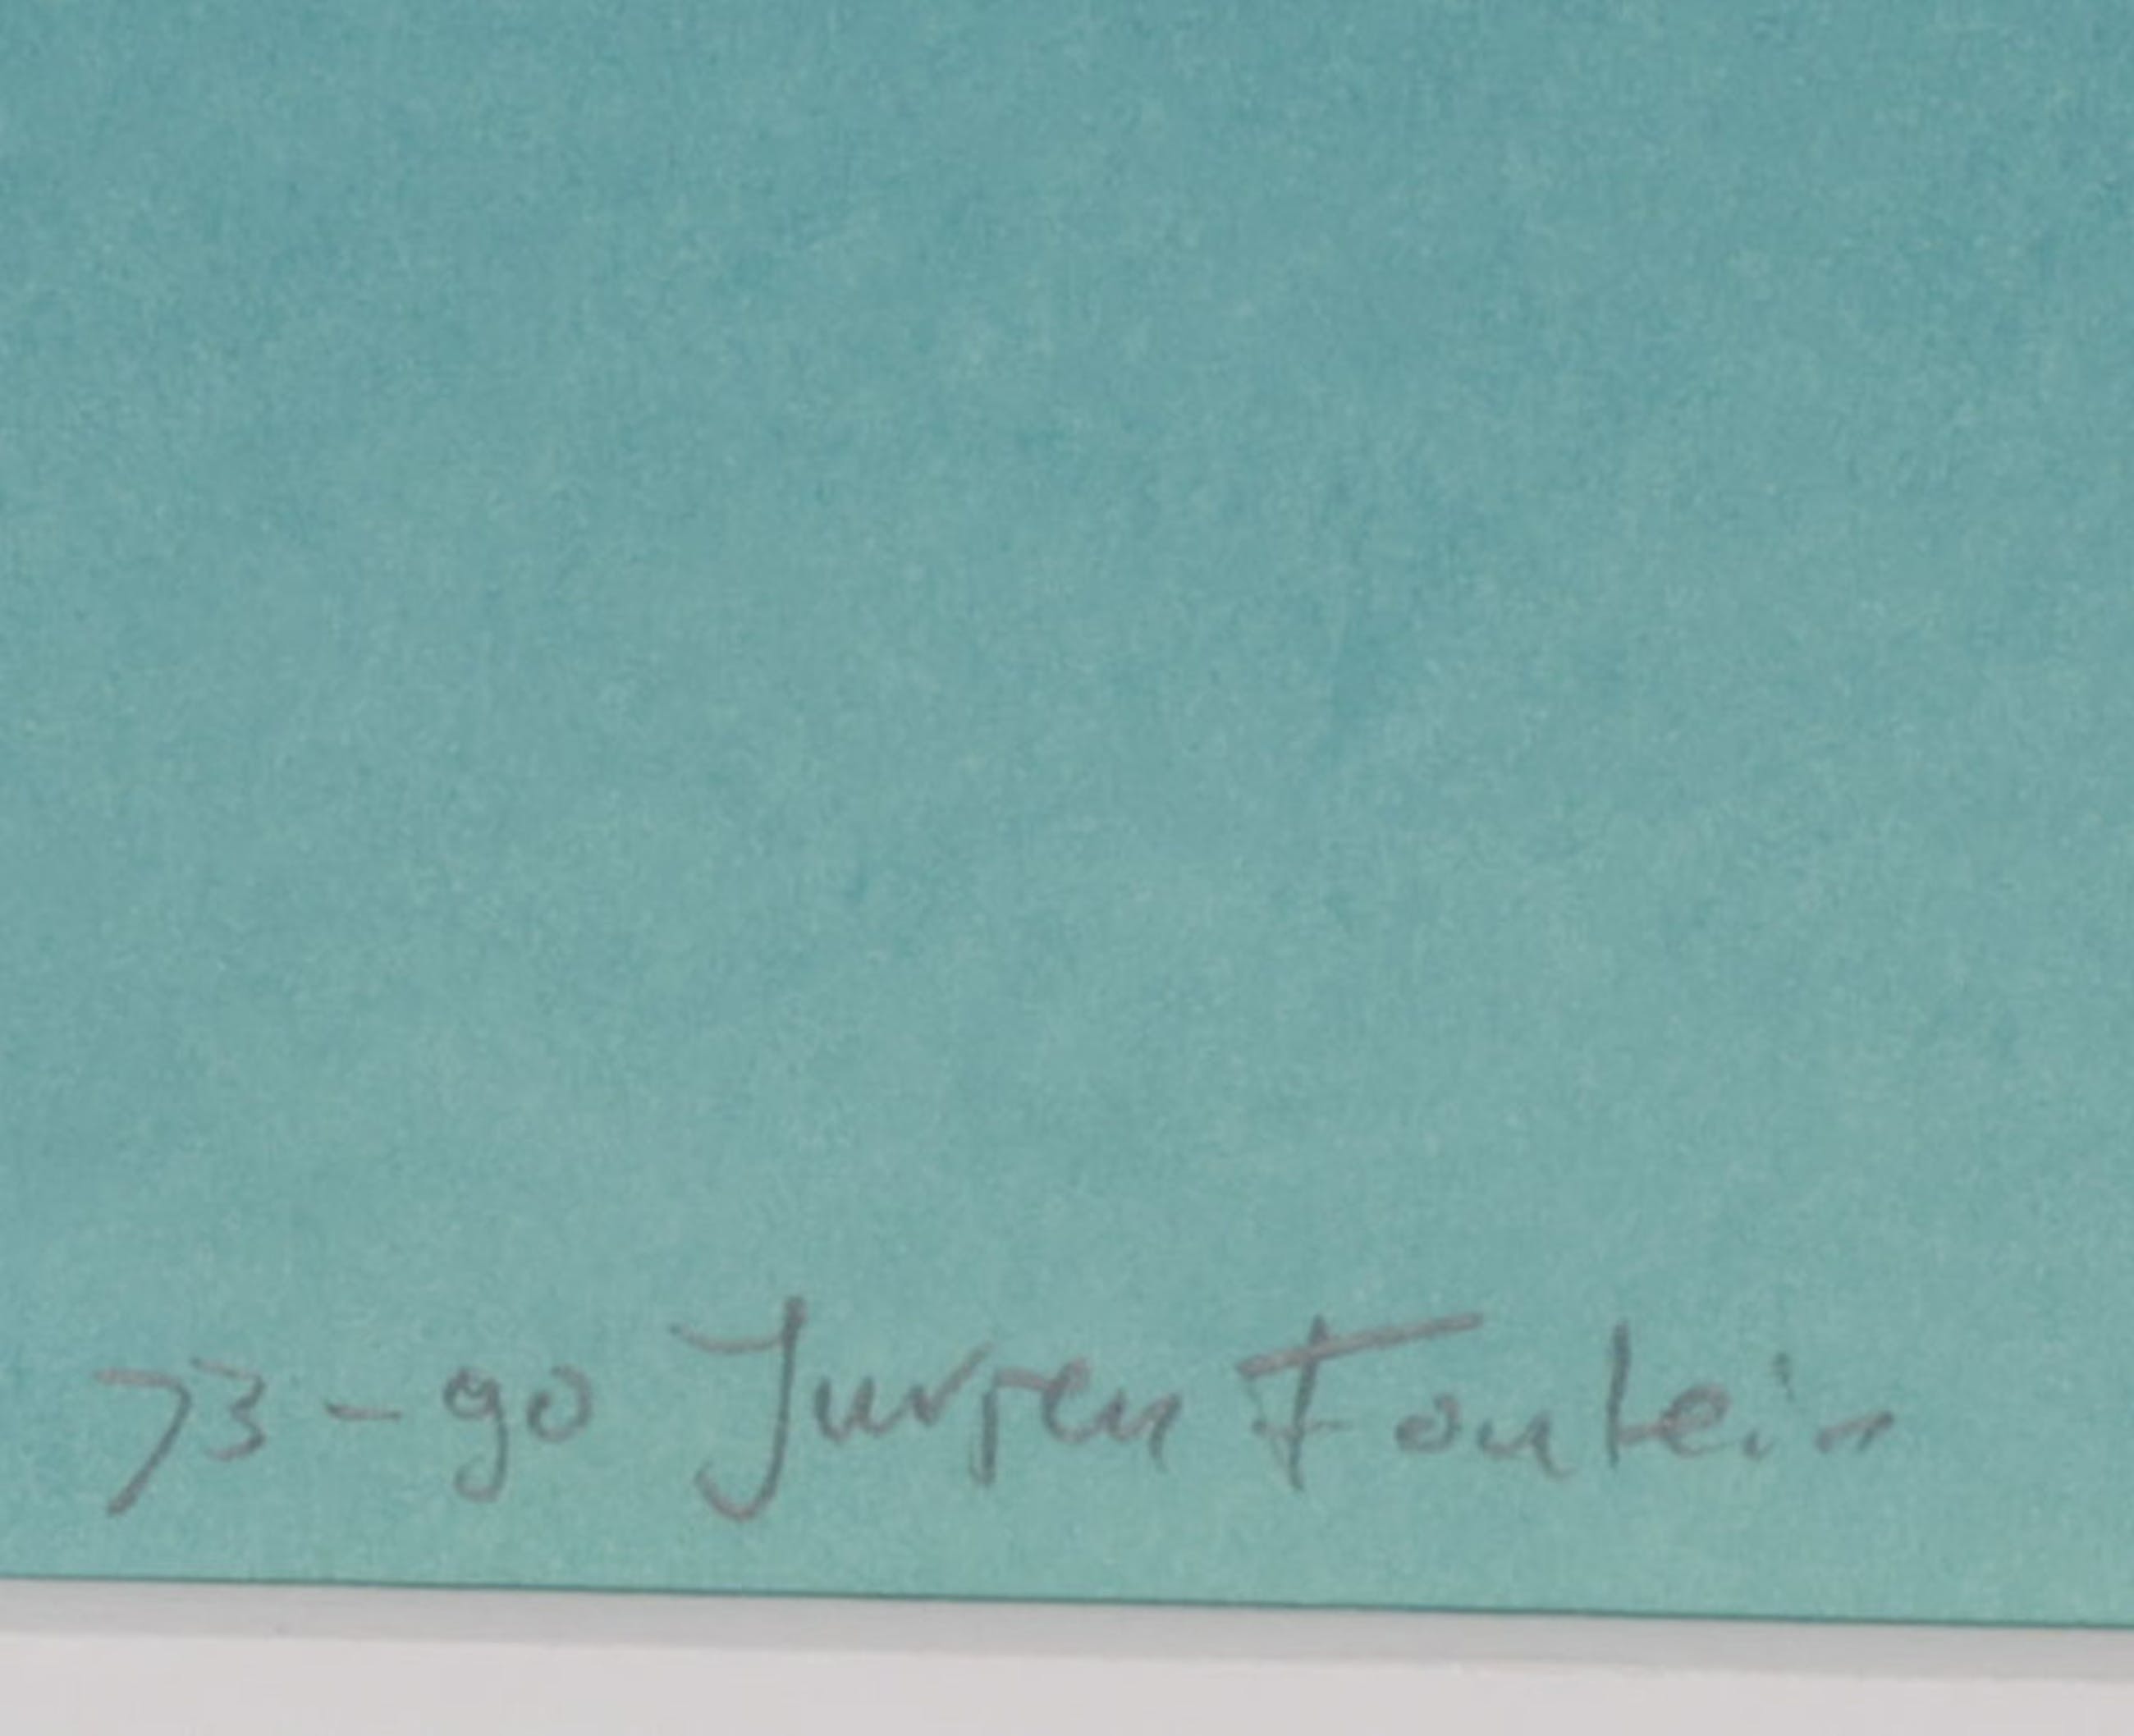 73-90 Jurjen Fontein